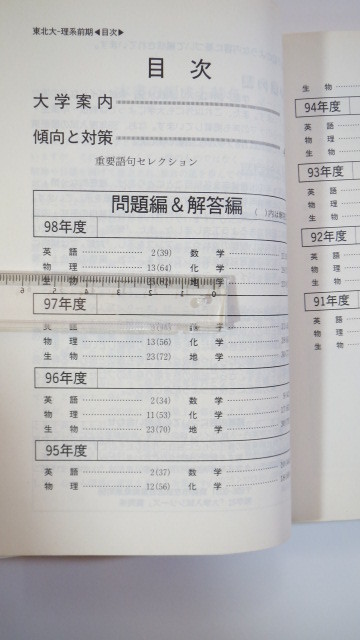 東北大-理系前期◀目次▶
目次
大学案内
傾向と対策
重要語句セレクション
問題編＆解答編
98年度
英語 2(39) 数学
物理 13(64) 化学
97年度
物理 13(56) 化学
生物 23(72) 地学
96年度
英語 2(34) 数学
物理 11(53) 化学
生物 23(70) 地学
95年度
英語 2(37) 数学
物理 12(56) 化学
生物
94年度
英語
物理
生物
93年度
英語
物理
生物
92年度
英語
物理
生物
91年度
英語
物理
生物